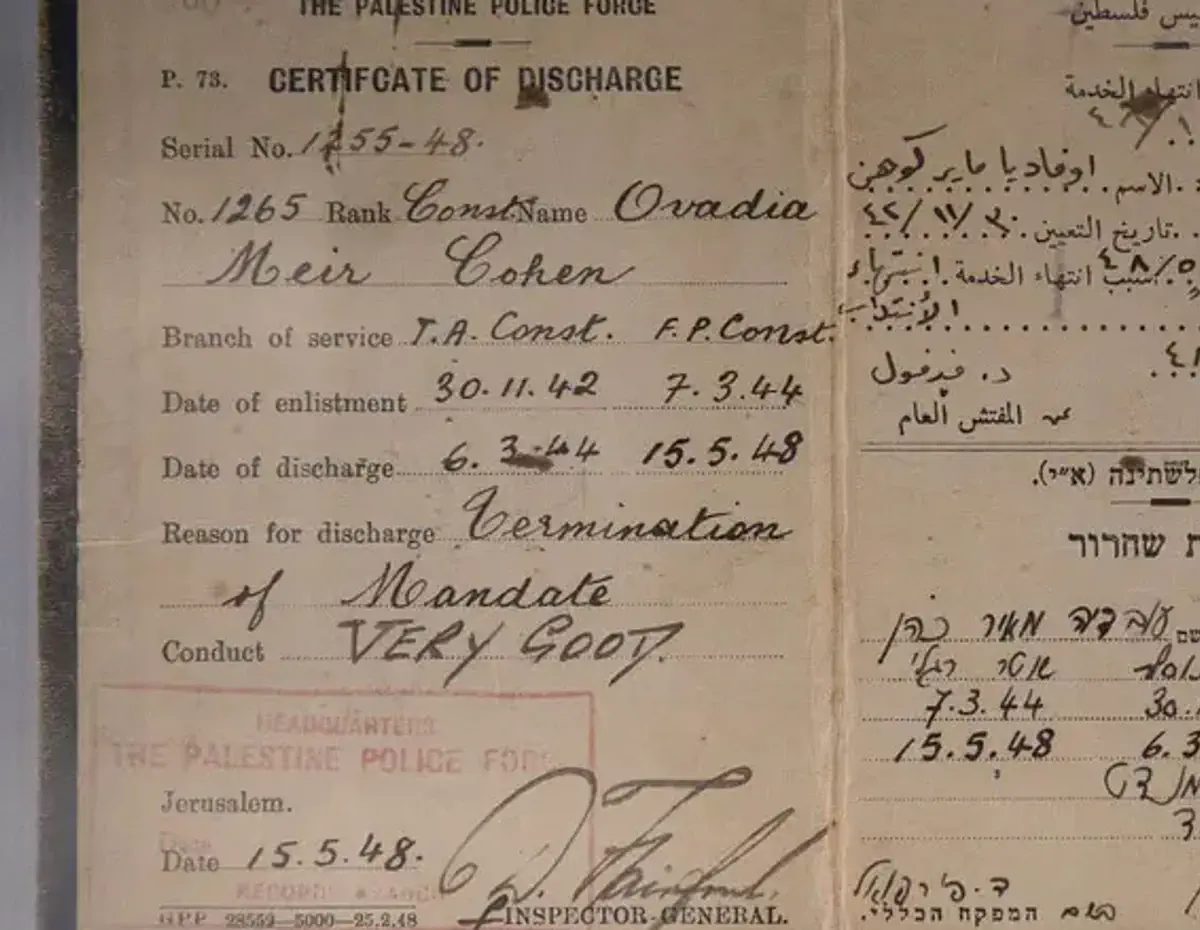 THE PALESTINE POLICE FORCE
P. 73. CERTIFCATE OF DISCHARGE
Serial No. 1255-48.
No. 1265 Rank Const. Name Ovadia
Meir Cohen
Branch of service T.A. Const. F.P. Const.
Date of enlistment 30.11.42 7.3.44
Date of discharge 6.3.44 15.5.48
Reason for discharge Termination
of Mandate
Conduct VERY GOOD.
HEADQUARTERS
THE PALESTINE POLICE FORC
Jerusalem.
Date
Date 15.5.48.
RECORDS
G.P.P. 28559—5000—25.2.48
INSPECTOR-GENERAL.
يس فلسطين
انتهاء الخدمة
الاسم اوفاديا ماير كوهين
تاريخ التعيين ٣٠/١١/٤٢
سبب انتهاء الخدمة انتهاء
الأنتداب
المفتش العام
לשתינה (א״י).
ת שחרור
שם עובדיה מאיר כהן
7.3.44 30.
15.5.48 6.3
מנדט
המפקח הכללי.